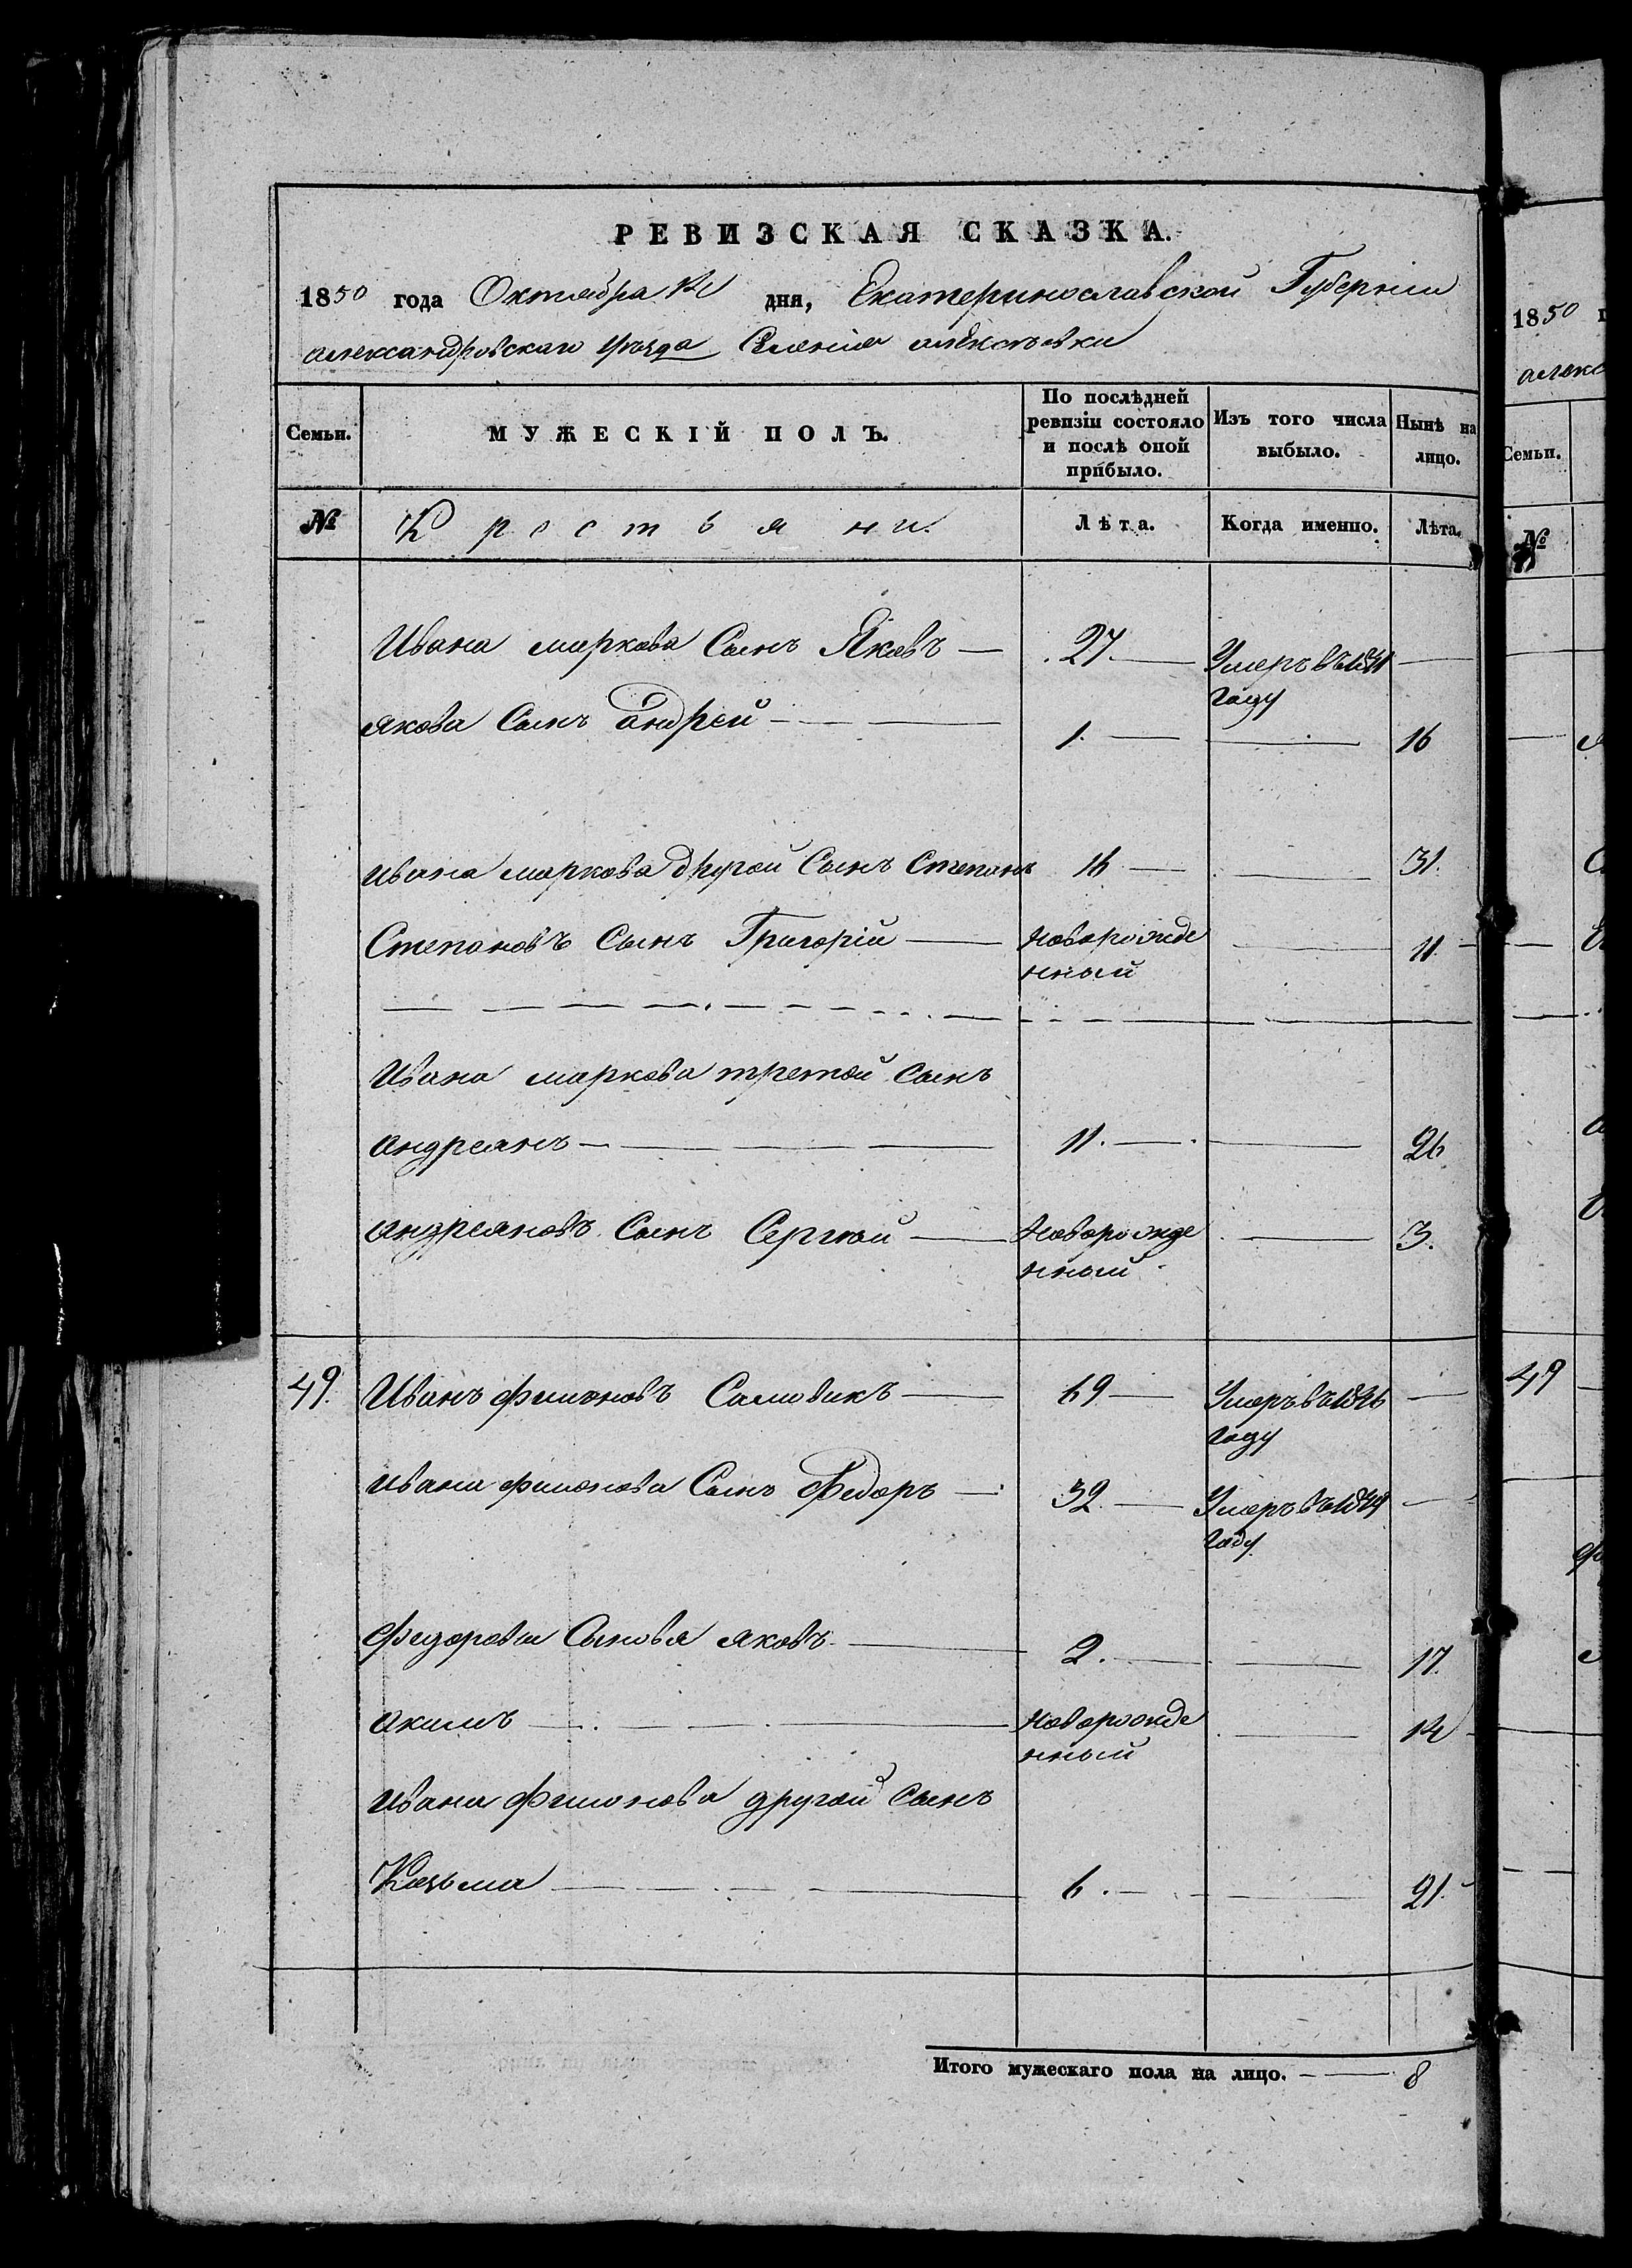 РЕВИЗСКАЯ СКАЗКА.
1850 года Октября дня, Екатеринославской Губерніи
александровскаго уѣзда Селенія алексѣевки
Семьи. МУЖЕСКІЙ ПОЛЪ. По послѣдней ревизіи состояло и послѣ оной прибыло. Изъ того числа выбыло. Нынѣ на лицо.
№ Крестьяни. Лѣта. Когда именно. Лѣта.
Ивана маркова Сынъ Яковъ — 27. — Умеръ въ 1841 —
году
якова Сынъ андрей — 1. — — 16
ивана маркова другой Сынъ Степанъ 16 — — 31.
Степановъ Сынъ Григорій — новорожде — 11
нный
Ивана маркова третой Сынъ
андреянъ — 11. — — 26
андреяновъ Сынъ Сергѣй — Новорожде — 3.
нный
49. Иванъ филоновъ — 69 — Умеръ въ 1836 —
году
ивана филонова Сынъ Федоръ — 32. — Умеръ въ 1849 —
году.
федоровы Сыновья яковъ — 2. — — 17.
акимъ — Новорожде — 14
нный
ивана филонова другой Сынъ
Козьма — 6. — — 21.
Итого мужескаго пола на лицо. — 8
1850
алекс
Семьи.
№
49